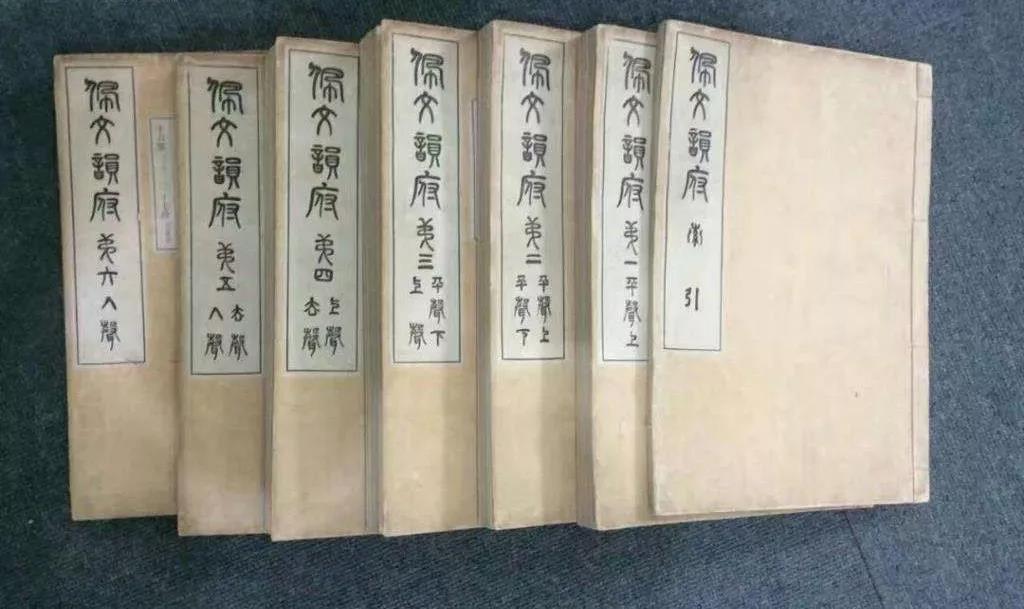 佩文韻府
索引
佩文韻府
弟一
平聲上
佩文韻府
弟二
平聲上
平聲下
佩文韻府
弟三
平聲下
上聲
佩文韻府
弟四
上聲
去聲
佩文韻府
弟五
去聲
入聲
佩文韻府
弟六
入聲